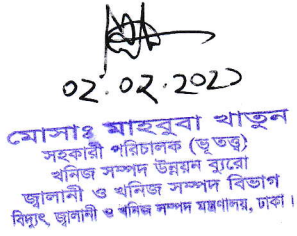 02.02.2023
মোসাঃ মাহবুবা খাতুন
সহকারী পরিচালক (ভূ তত্ত্ব)
খনিজ সম্পদ উন্নয়ন ব্যুরো
জ্বালানী ও খনিজ সম্পদ বিভাগ
বিদ্যুৎ, জ্বালানী ও খনিজ সম্পদ মন্ত্রণালয়, ঢাকা।